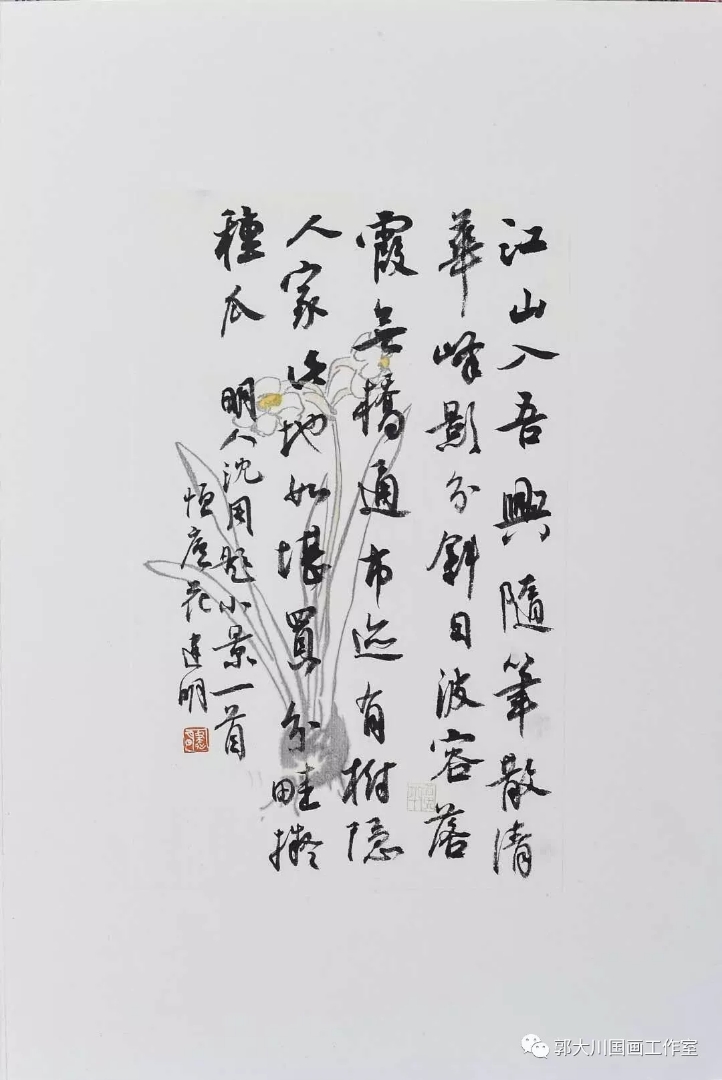 江山入吾興隨筆散清
華峰影分斜日波容落
霞無橋通市迹有樹隱
人家此地如堪買分畦擬
種瓜 明人沈周題小景一首
恒廬花建明
郭大川国画工作室